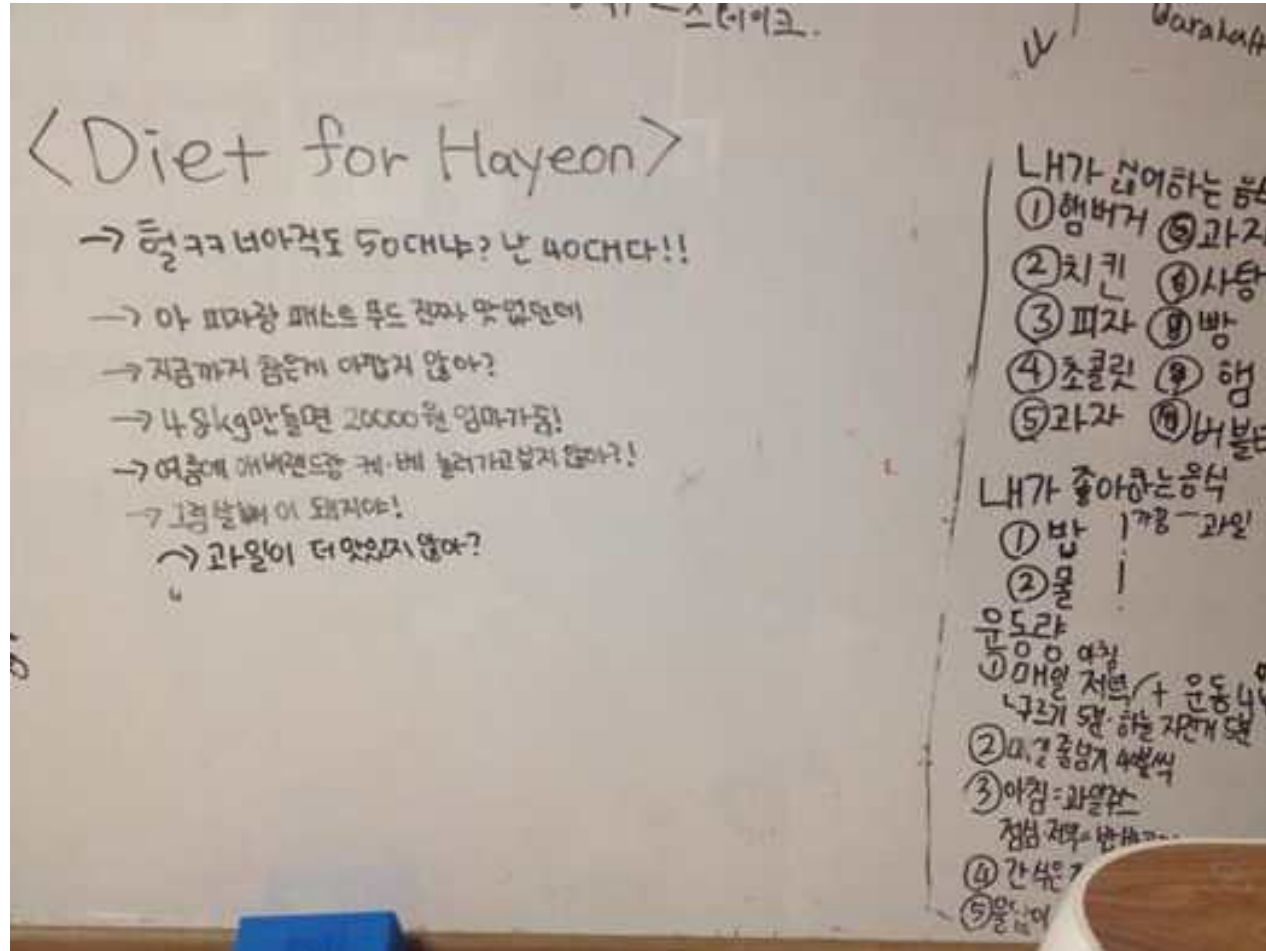 스테이크.
<Diet for Hayeon>
→ 헐 ㅋㅋ 너아직도 50대냐? 난 40대다!!
→ 아 피자랑 패스트 푸드 진짜 맛없던데
→ 지금까지 참은게 아깝지 않아?
→ 48kg만들면 20000원 엄마가줌!
→ 여름에 애버랜드랑 케·베 놀러가고싶지 않아?!
→ 그럼살빼 이 돼지야!
→ 과일이 더 맛있지 않아?
내가 싫어하는
① 햄버거 ⑤ 과자
② 치킨 ⑥ 사탕
③ 피자 빵
④ 초콜릿 햄
⑤ 과자 버블
내가 좋아하는음식
① 밥 가끔 - 과일
② 물
운동량
아침
① 매일 저녁 + 운동
구르기 5분·하늘 자전거 5분
② 줄넘기
③ 아침 = 과일주스
점심 저녁 =
④ 간식은
⑤